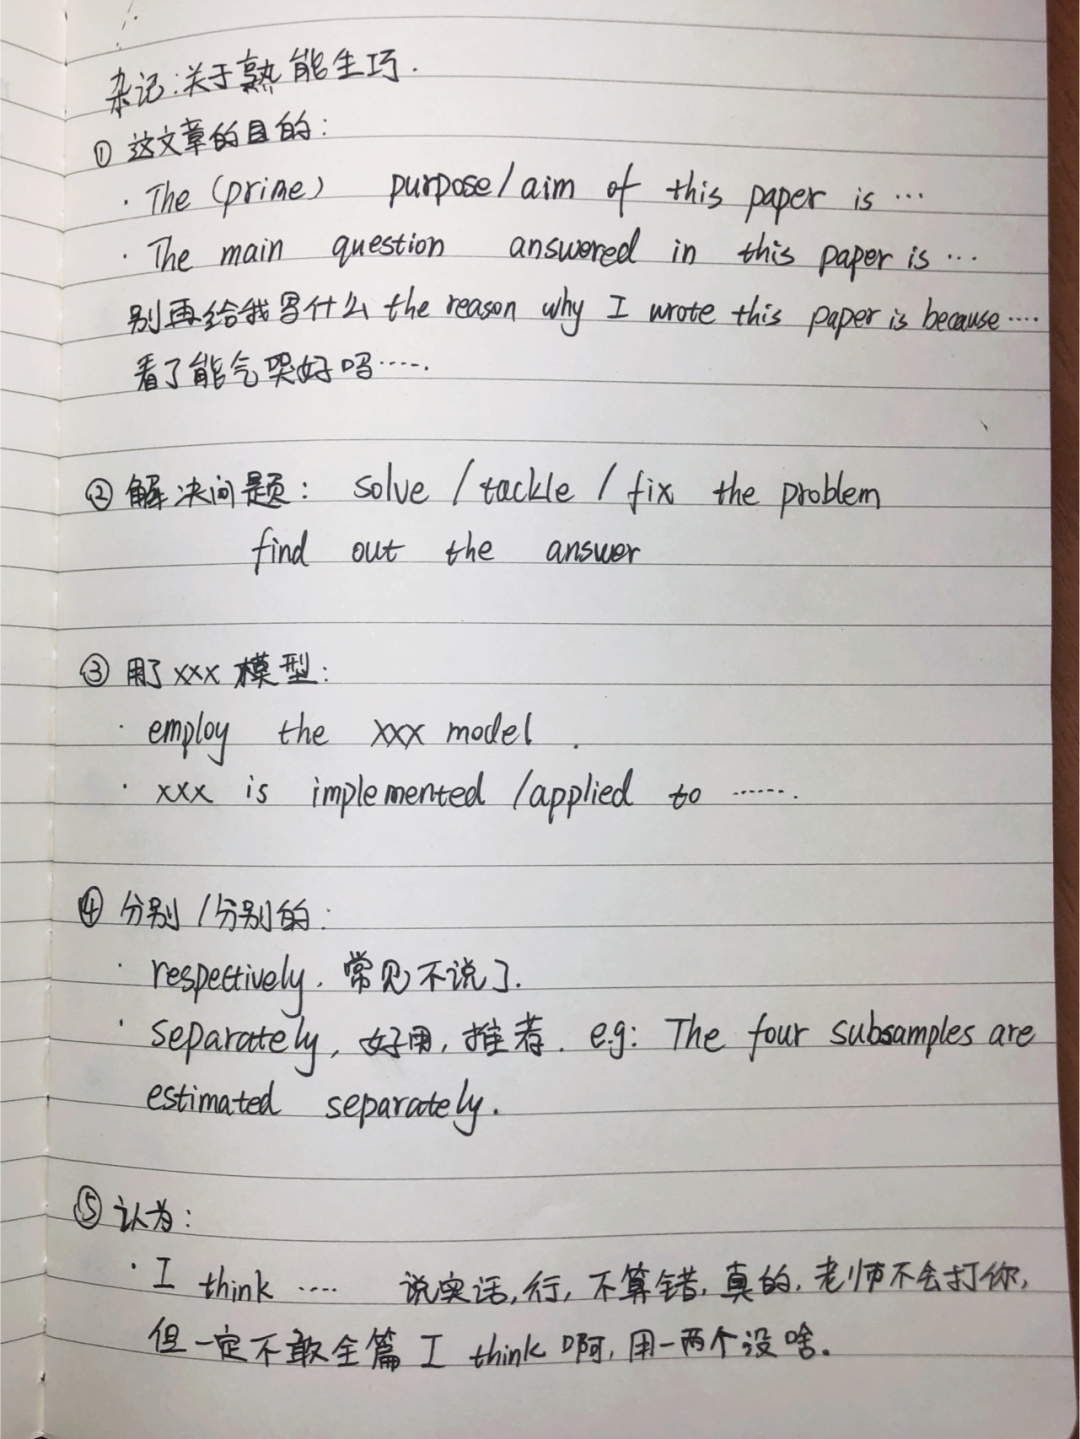 杂记:关于熟能生巧.
① 这文章的目的:
· The (prime) purpose/aim of this paper is ...
· The main question answered in this paper is ...
别再给我写什么 the reason why I wrote this paper is because ....
看了能气哭好吗.....
② 解决问题: solve / tackle / fix the problem
find out the answer
③ 用了 xxx 模型:
· employ the xxx model .
· xxx is implemented /applied to .......
④ 分别 / 分别的:
· respectively. 常见不说了.
· separately, 好用, 推荐. e.g: The four subsamples are
estimated separately.
⑤ 认为:
· I think .... 说实话,行,不算错,真的,老师不会打你,
但一定不敢全篇 I think 啊,用一两个没啥.